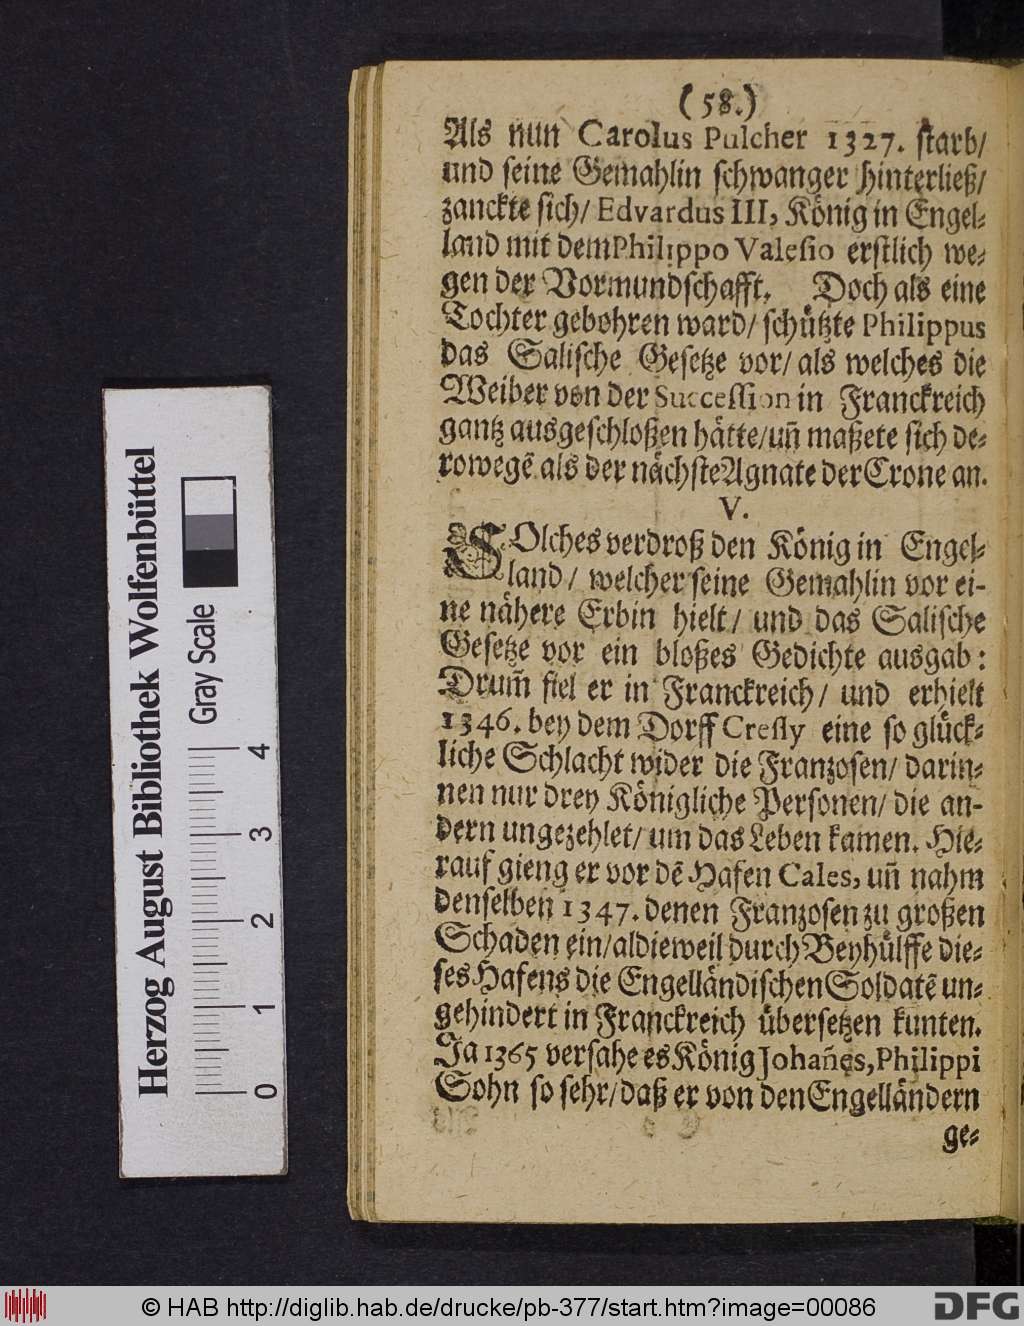 (58.)
Als nun Carolus Pulcher 1327. starb/
und seine Gemahlin schwanger hinterließ/
zanckte sich/ Edvardus III, König in Engel-
land mit dem Philippo Valesio erstlich we-
gen der Vormundschafft. Doch als eine
Tochter gebohren ward/ schützte Philippus
das Salische Gesetze vor/ als welches die
Weiber von der Succession in Franckreich
gantz ausgeschloßen hätte/ uñ maßete sich de-
rowegẽ als der nächste Agnate der Crone an.
V.
SOlches verdroß den König in Engel-
land/ welcher seine Gemahlin vor ei-
ne nähere Erbin hielt/ und das Salische
Gesetze vor ein bloßes Gedichte ausgab:
Drum̃ fiel er in Franckreich/ und erhielt
1346. bey dem Dorff Cressy eine so glück-
liche Schlacht wider die Franzosen/ darin-
nen nur drey Königliche Personen/ die an-
dern ungezehlet/ um das Leben kamen. Hie-
rauf gieng er vor dẽ Hafen Cales, uñ nahm
denselben 1347. denen Franzosen zu großen
Schaden ein/ aldieweil durch Beyhülffe die-
ses Hafens die Engelländischen Soldatẽ un-
gehindert in Franckreich übersetzen kunten.
Ja 1365 versahe es König Johañes, Philippi
Sohn so sehr/ daß er von den Engelländern
ge-
Herzog August Bibliothek Wolfenbüttel
Gray Scale
0 1 2 3 4
© HAB http://diglib.hab.de/drucke/pb-377/start.htm?image=00086
DFG